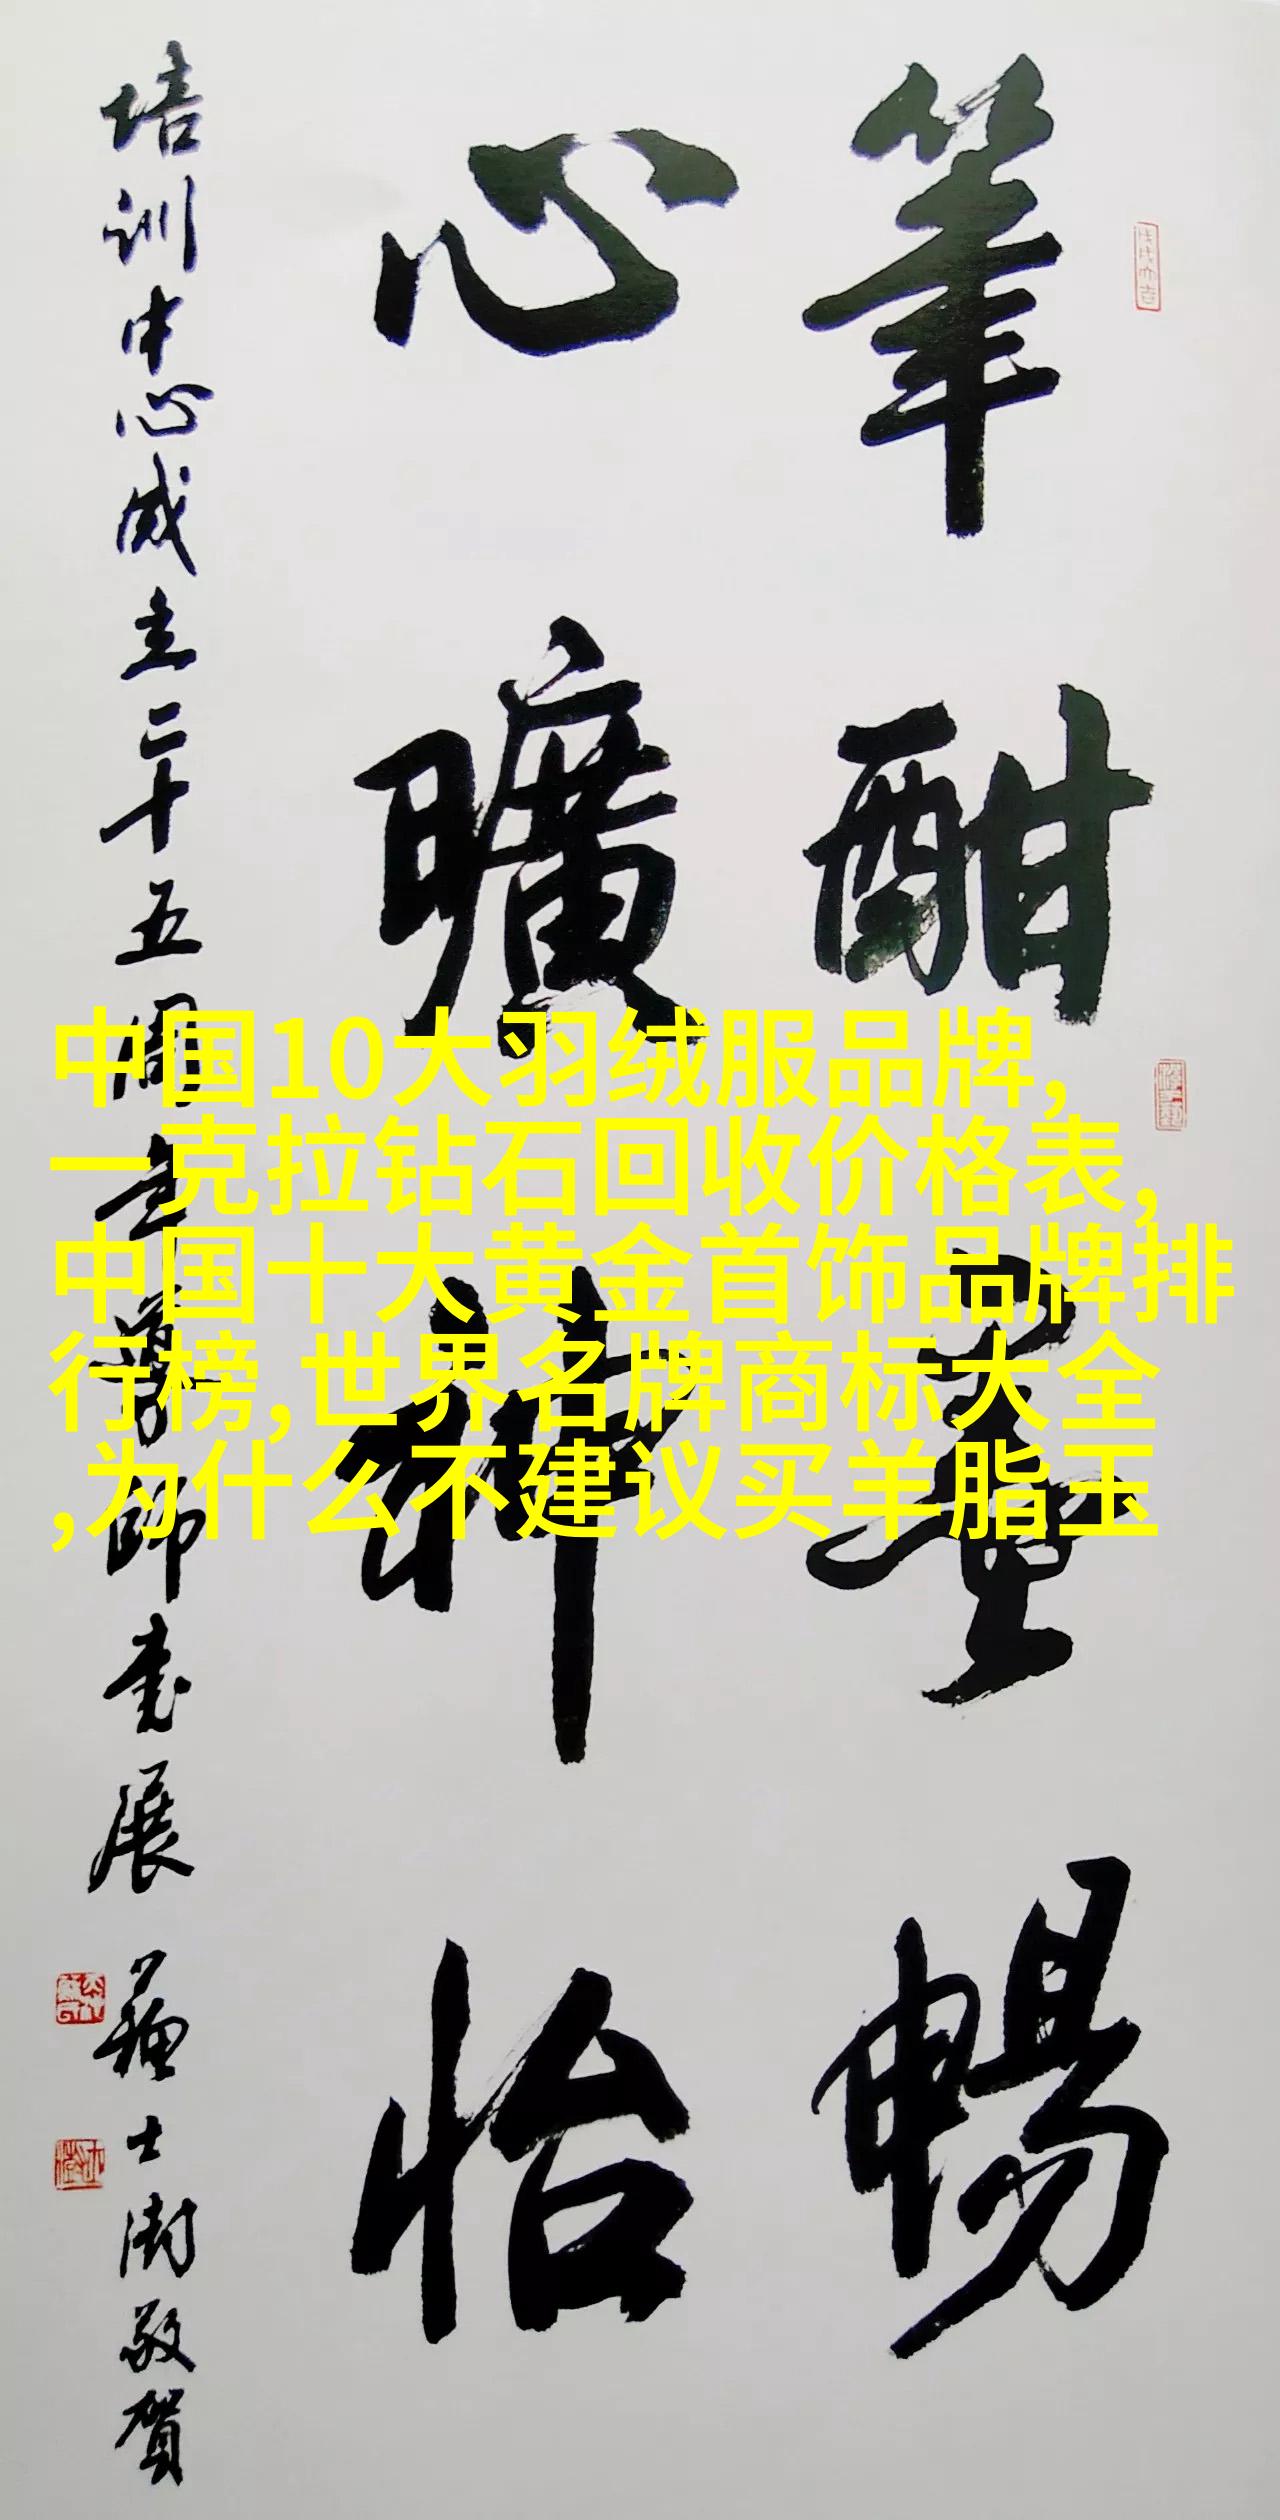 筆酣墨暢
心曠神怡
培训中心成立二十五周年導師書展 蘇士澍敬賀
中国10大羽绒服品牌,
一克拉钻石回收价格表,
中国十大黄金首饰品牌排
行榜,世界名牌商标大全
,为什么不建议买羊脂玉